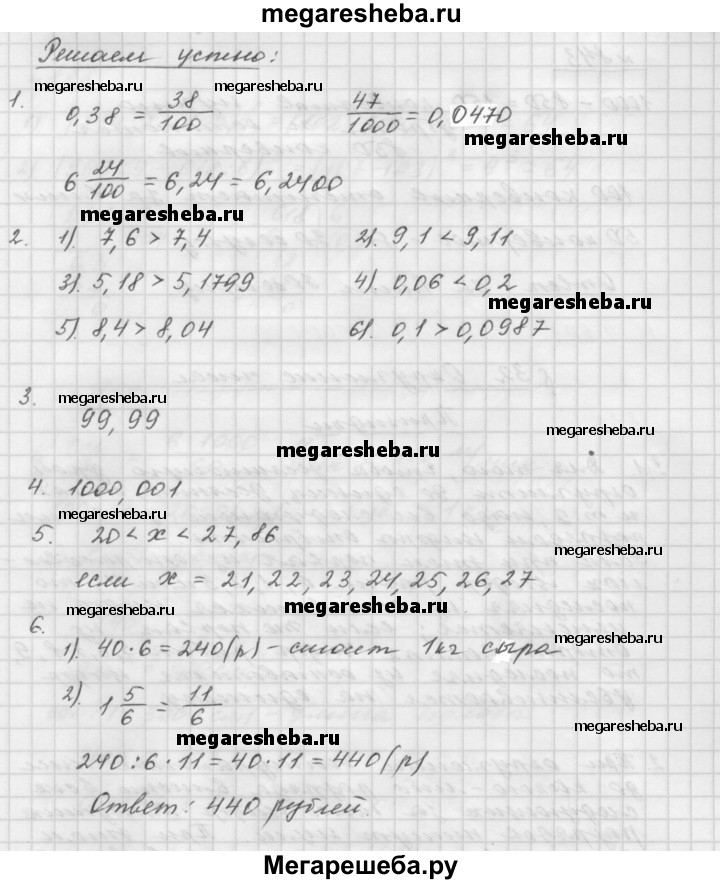 megaresheba.ru
Решаем устно:
megaresheba.ru megaresheba.ru
1. 0,38 = 38/100 47/1000 = 0,0470
megaresheba.ru
6 24/100 = 6,24 = 6,2400
megaresheba.ru
2. 1). 7,6 > 7,4 2). 9,1 < 9,11
3). 5,18 > 5,1799 4). 0,06 < 0,2
megaresheba.ru
5). 8,4 > 8,04 6). 0,1 > 0,0987
3. megaresheba.ru
99,99
megaresheba.ru
megaresheba.ru
4. 1000,001
megaresheba.ru
5. 20 < x < 27,86
megaresheba.ru
если x = 21, 22, 23, 24, 25, 26, 27
megaresheba.ru megaresheba.ru
6.
1). 40 · 6 = 240 (р) - стоит 1 кг сыра
megaresheba.ru
2). 1 5/6 = 11/6
megaresheba.ru
megaresheba.ru
240 : 6 · 11 = 40 · 11 = 440 (р)
Ответ: 440 рублей.
Мегарешеба.ру